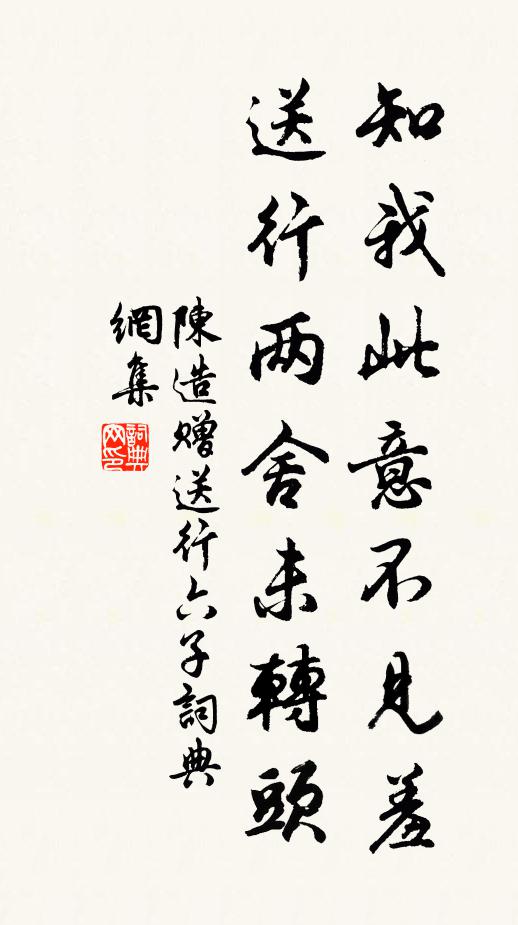 知我此意不見羞
送行两舍未轉頭
陳造贈送行六子詞典
網集
詞典
网印